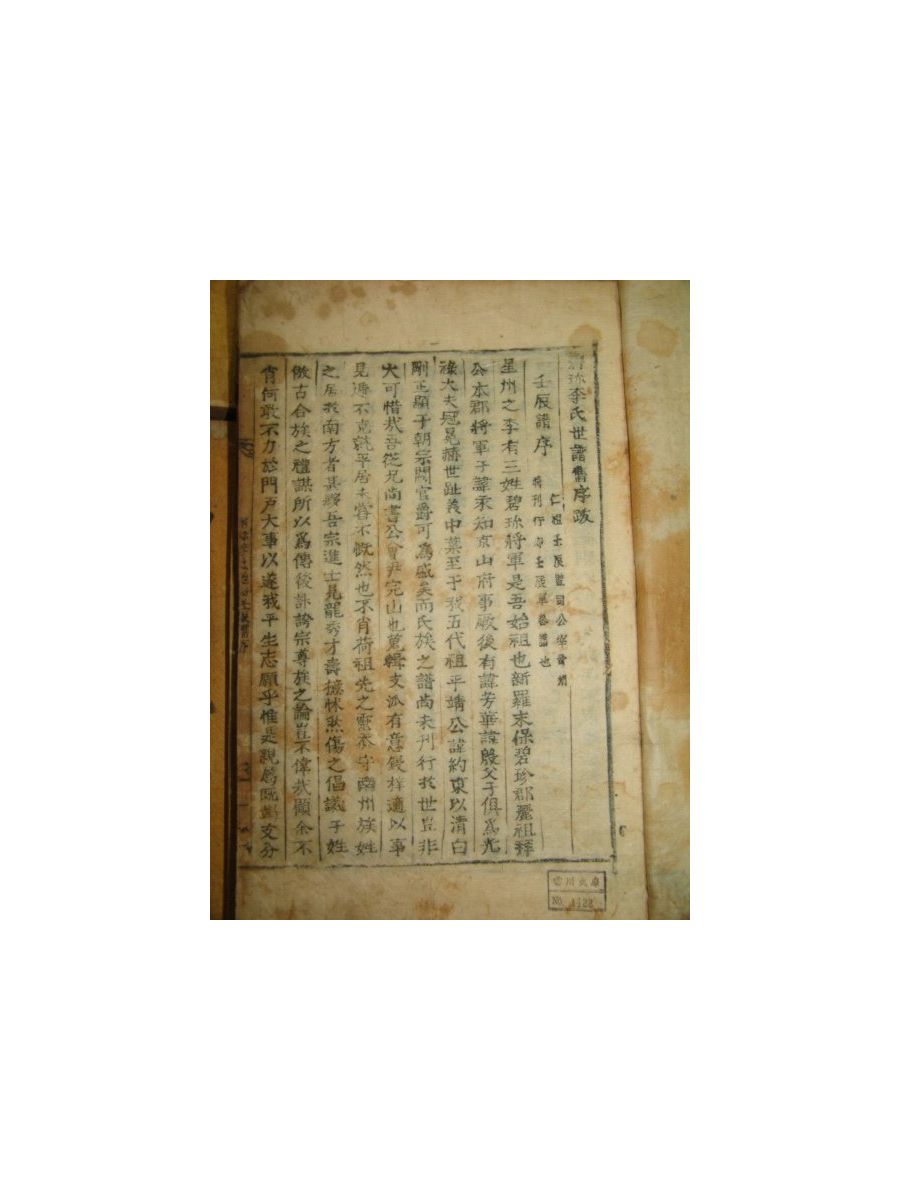 碧珍李氏世譜舊序跋
壬辰譜序
仁祖壬辰監司公宰
刊行 壬辰單 譜也
星州之李有三姓碧珍將軍是吾始祖也新羅末保碧珍郡麗祖拜
公本郡將軍子諱 知京山府事厥後有諱芳華諱殷父子俱爲光
祿大夫冠冕赫世趾美中葉至于我五代祖平靖公諱約東以清白
剛正顯于朝宗閥官爵可爲盛矣而氏族之譜尚未刊行於世豈非
大可惜哉吾從兄尚書公會尹完山也蒐輯支派有意鋟梓適以事
見遞不克就平居未嘗不慨然也不肖荷祖先之靈 守 州族姓
之居於南方者甚夥吾宗進士見龍秀才壽 倡議子姓
倣古合族之禮謀所以爲傳後 宗尊族之論豈不偉哉顧余不
肖何敢不力於門戶大事以遂我平生志願乎惟是親 既 支分
川文庫
No. 1122